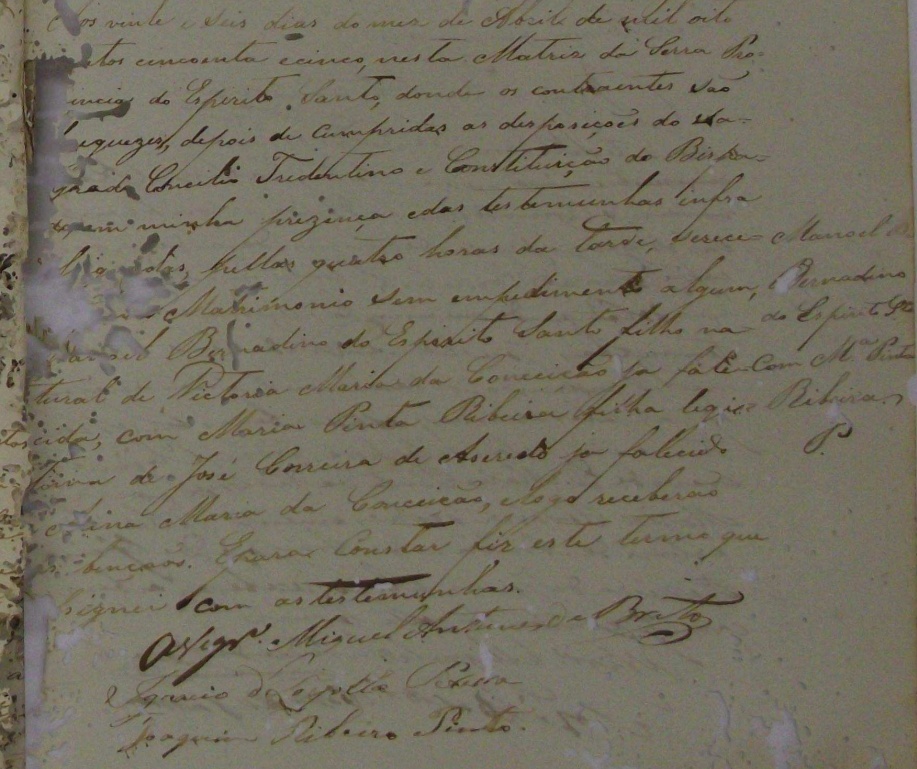 Aos vinte e seis dias do mez de Abril de mil oito
centos cincoenta e cinco, nesta Matriz da Serra Pro-
vincia do Espirito Santo, donde os contraentes são
freguezes, depois de cumpridas as desposições do Sa-
grado Concilio Tredentino e Constituição do Bispa-
do, em minha prezença e das testemunhas infra
pellas quatro horas da tarde, Serece-
Matrimonio sem empedimento algum,
Manoel Bernadino do Espirito Santo filho na-
tural de Victoria Maria da Conceicão ja fale-
cida, com Maria Pinta Ribeira filha legi-
tima de José Correira de Aseredo ja falecido
e Maria da Conceição, elogo receberão
as bençãos. Epara Constar fiz este termo que
Signei com as testemunhas.
O Vigr.º Miguel Antunes de Britto
Ignacio d'Loyolla
Joaquim Ribeiro Pinto.
Manoel
Bernadino
do Espirito Sto
Com Mª Pinta
Ribeira
P.